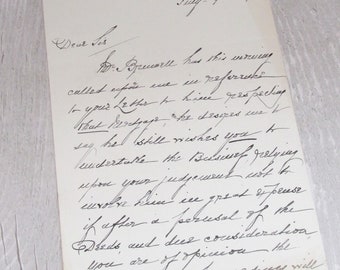 July
Dear Sir
Mr. Bunnell has this morning
called upon me in reference
to your Letter to him respecting
that Mortgage & he desires me to
say he still wishes you to
undertake the Business relying
upon your judgement not to
involve him in great expense
if after a perusal of the
Deeds and due consideration
you are of opinion the
will